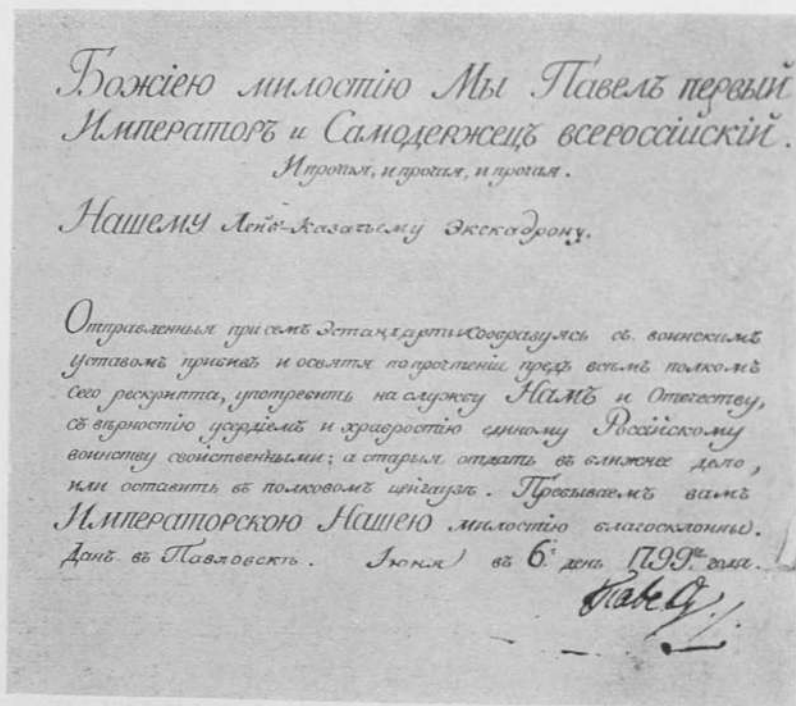 Божіею милостію Мы Павелъ первый
Императоръ и Самодержецъ всероссійскій.
И прочая, и прочая, и прочая.
Нашему Лейбъ-Казачьему Эскадрону.
Отправленныя при семъ Эстандарты сообразуясь съ воинскимъ
уставомъ прибивъ и освятя по прочтеніи предъ всѣмъ полкомъ
сего рескрипта, употребить на службу Намъ и Отечеству,
съ вѣрностію усердіемъ и храбростію единому Россійскому
воинству свойственными; а старыя отдать въ ближнее депо,
или оставить въ полковомъ цейгаузѣ. Пребываемъ вамъ
Императорскою Нашею милостію благосклонны.
Данъ въ Павловскѣ. Іюня въ 6.й день 1799.го года.
Павелъ